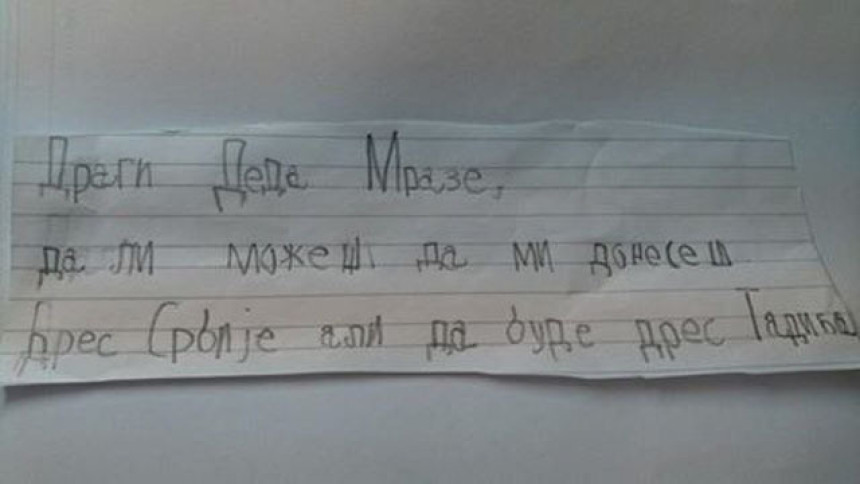 Драги Деда Мразе,
да ли можеш да ми донесеш
дрес Србије али да буде дрес Тадића